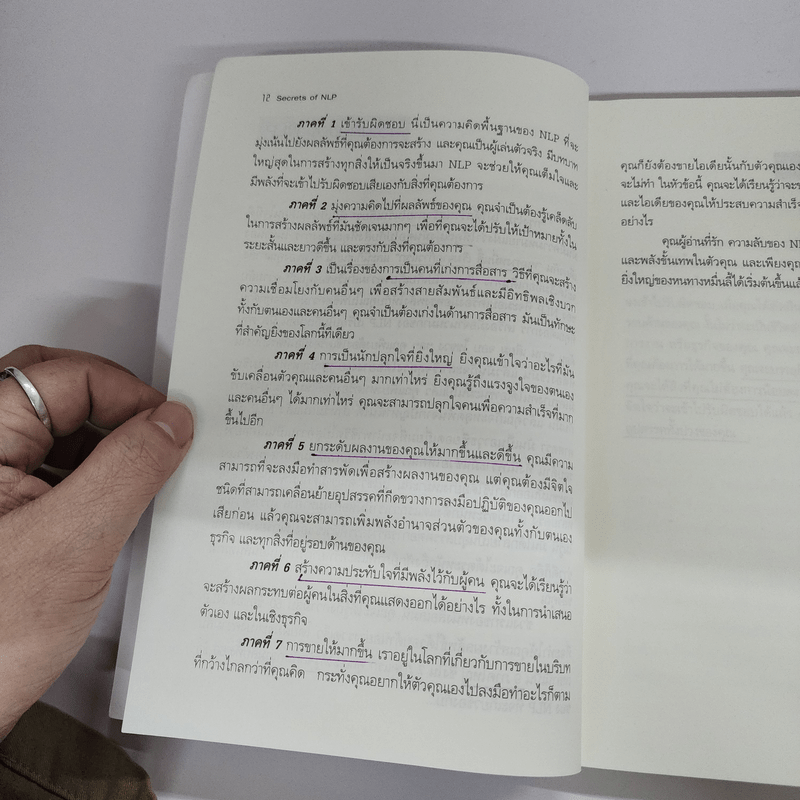 12 Secrets of NLP
ภาคที่ 1 เข้ารับผิดชอบ นี่เป็นความคิดพื้นฐานของ NLP ที่จะ
มุ่งเน้นไปยังผลลัพธ์ที่คุณต้องการจะสร้าง และคุณเป็นผู้เล่นตัวจริง มีบทบาท
ใหญ่สุดในการสร้างทุกสิ่งให้เป็นจริงขึ้นมา NLP จะช่วยให้คุณเต็มใจและ
มีพลังที่จะเข้าไปรับผิดชอบเสียเองกับสิ่งที่คุณต้องการ
ภาคที่ 2 มุ่งความคิดไปที่ผลลัพธ์ของคุณ คุณจำเป็นต้องรู้เคล็ดลับ
ในการสร้างผลลัพธ์ที่มันชัดเจนมากๆ เพื่อที่คุณจะได้ปรับให้เป้าหมายทั้งใน
ระยะสั้นและยาวดีขึ้น และตรงกับสิ่งที่คุณต้องการ
ภาคที่ 3 เป็นเรื่องของการเป็นคนที่เก่งการสื่อสาร วิธีที่คุณจะสร้าง
ความเชื่อมโยงกับคนอื่นๆ เพื่อสร้างสายสัมพันธ์และมีอิทธิพลเชิงบวก
ทั้งกับตนเองและคนอื่นๆ คุณจำเป็นต้องเก่งในด้านการสื่อสาร มันเป็นทักษะ
ที่สำคัญยิ่งของโลกนี้ทีเดียว
ภาคที่ 4 การเป็นนักปลุกใจที่ยิ่งใหญ่ ยิ่งคุณเข้าใจว่าอะไรที่มัน
ขับเคลื่อนตัวคุณและคนอื่นๆ มากเท่าไหร่ ยิ่งคุณรู้ถึงแรงจูงใจของตนเอง
และคนอื่นๆ ได้มากเท่าไหร่ คุณจะสามารถปลุกใจคนเพื่อความสำเร็จที่มาก
ขึ้นไปอีก
ภาคที่ 5 ยกระดับผลงานของคุณให้มากขึ้นและดีขึ้น คุณมีความ
สามารถที่จะลงมือทำสารพัดเพื่อสร้างผลงานของคุณ แต่คุณต้องมีจิตใจ
ชนิดที่สามารถเคลื่อนย้ายอุปสรรคที่กีดขวางการลงมือปฏิบัติของคุณออกไป
เสียก่อน แล้วคุณจะสามารถเพิ่มพลังอำนาจส่วนตัวของคุณทั้งกับตนเอง
ธุรกิจ และทุกสิ่งที่อยู่รอบด้านของคุณ
ภาคที่ 6 สร้างความประทับใจที่มีพลังไว้กับผู้คน คุณจะได้เรียนรู้ว่า
จะสร้างผลกระทบต่อผู้คนในสิ่งที่คุณแสดงออกได้อย่างไร ทั้งในการนำเสนอ
ตัวเอง และในเชิงธุรกิจ
ภาคที่ 7 การขายให้มากขึ้น เราอยู่ในโลกที่เกี่ยวกับการขายในบริบท
ที่กว้างไกลกว่าที่คุณคิด กระทั่งคุณอยากให้ตัวคุณเองไปลงมือทำอะไรก็ตาม
คุณก็ยังต้องขายไอเดียนั้นกับตัวคุณเอง
จะไม่ทำ ในหัวข้อนี้ คุณจะได้เรียนรู้ว่าจะ
และไอเดียของคุณให้ประสบความสำเร็จ
อย่างไร
คุณผู้อ่านที่รัก ความลับของ
และพลังขั้นเทพในตัวคุณ และเพียงคุณ
ยิ่งใหญ่ของหนทางหมื่นลี้ได้เริ่มต้นขึ้นแล้ว